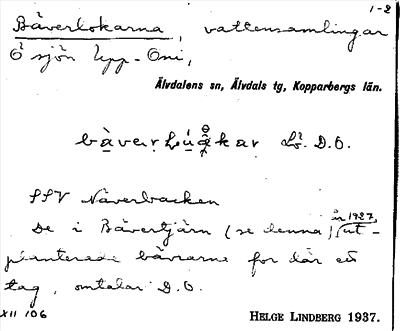 1-2
Bäverlokarna, vattensamlingar
Ö sjön Upp-Oni,
Älvdalens sn, Älvdals tg, Kopparbergs län.
Lǒ. D.O.
SSV Näverbacken
De i Bävertjärn (se denna) år 1927, ut-
planterade bävrarne for där ett
tag, omtalar D.O.
XII 106
HELGE LINDBERG 1937.